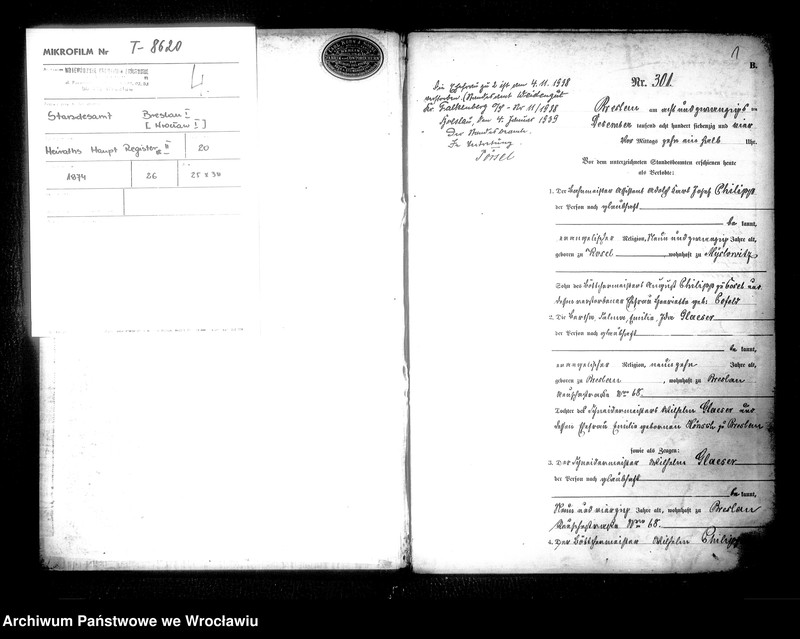 MIKROFILM Nr T-8620
Standesamt Breslau I
[Wrocław I]
Heiraths Haupt Register 20
1874 26 25 x 34
1
B.
Die Ehefrau zu 2 ist am 4.11.1938
verstorben (Standesamt
Kr. Falkenberg O/S - Nr 11/1938
Breslau, den 4. Januar 1939
Der Standesbeamte.
In Vertretung
Nr. 301
Breslau am acht und zwanzigsten
Dezember tausend acht hundert siebenzig und vier
Vor Mittags zehn ein halb Uhr.
Vor dem unterzeichneten Standesbeamten erschienen heute
als Verlobte:
1. Der Assistent Adolf Carl Josef Philipp
der Person nach glaubhaft
be kannt,
evangelischer Religion, Neun und zwanzig Jahre alt,
geboren zu Kosel, wohnhaft zu Myslowitz
Sohn des Böttchermeisters August Philipp zu Cosel und
dessen verstorbener Ehefrau Henriette geb:
2. Die Bertha, Selma, Emilie, Ida Glaeser
der Person nach glaubhaft
be kannt,
evangelischer Religion, neunzehn Jahre alt,
geboren zu Breslau, wohnhaft zu Breslau
No 68.
Tochter des Schneidermeisters Wilhelm Glaeser und
dessen Ehefrau Emilie geborenen zu Breslau
sowie als Zeugen:
3. Der Schneidermeister Wilhelm Glaeser
der Person nach glaubhaft
be kannt,
Neun und vierzig Jahre alt, wohnhaft zu Breslau
No 68.
4. Der Böttchermeister Wilhelm Philipp
Archiwum Państwowe we Wrocławiu